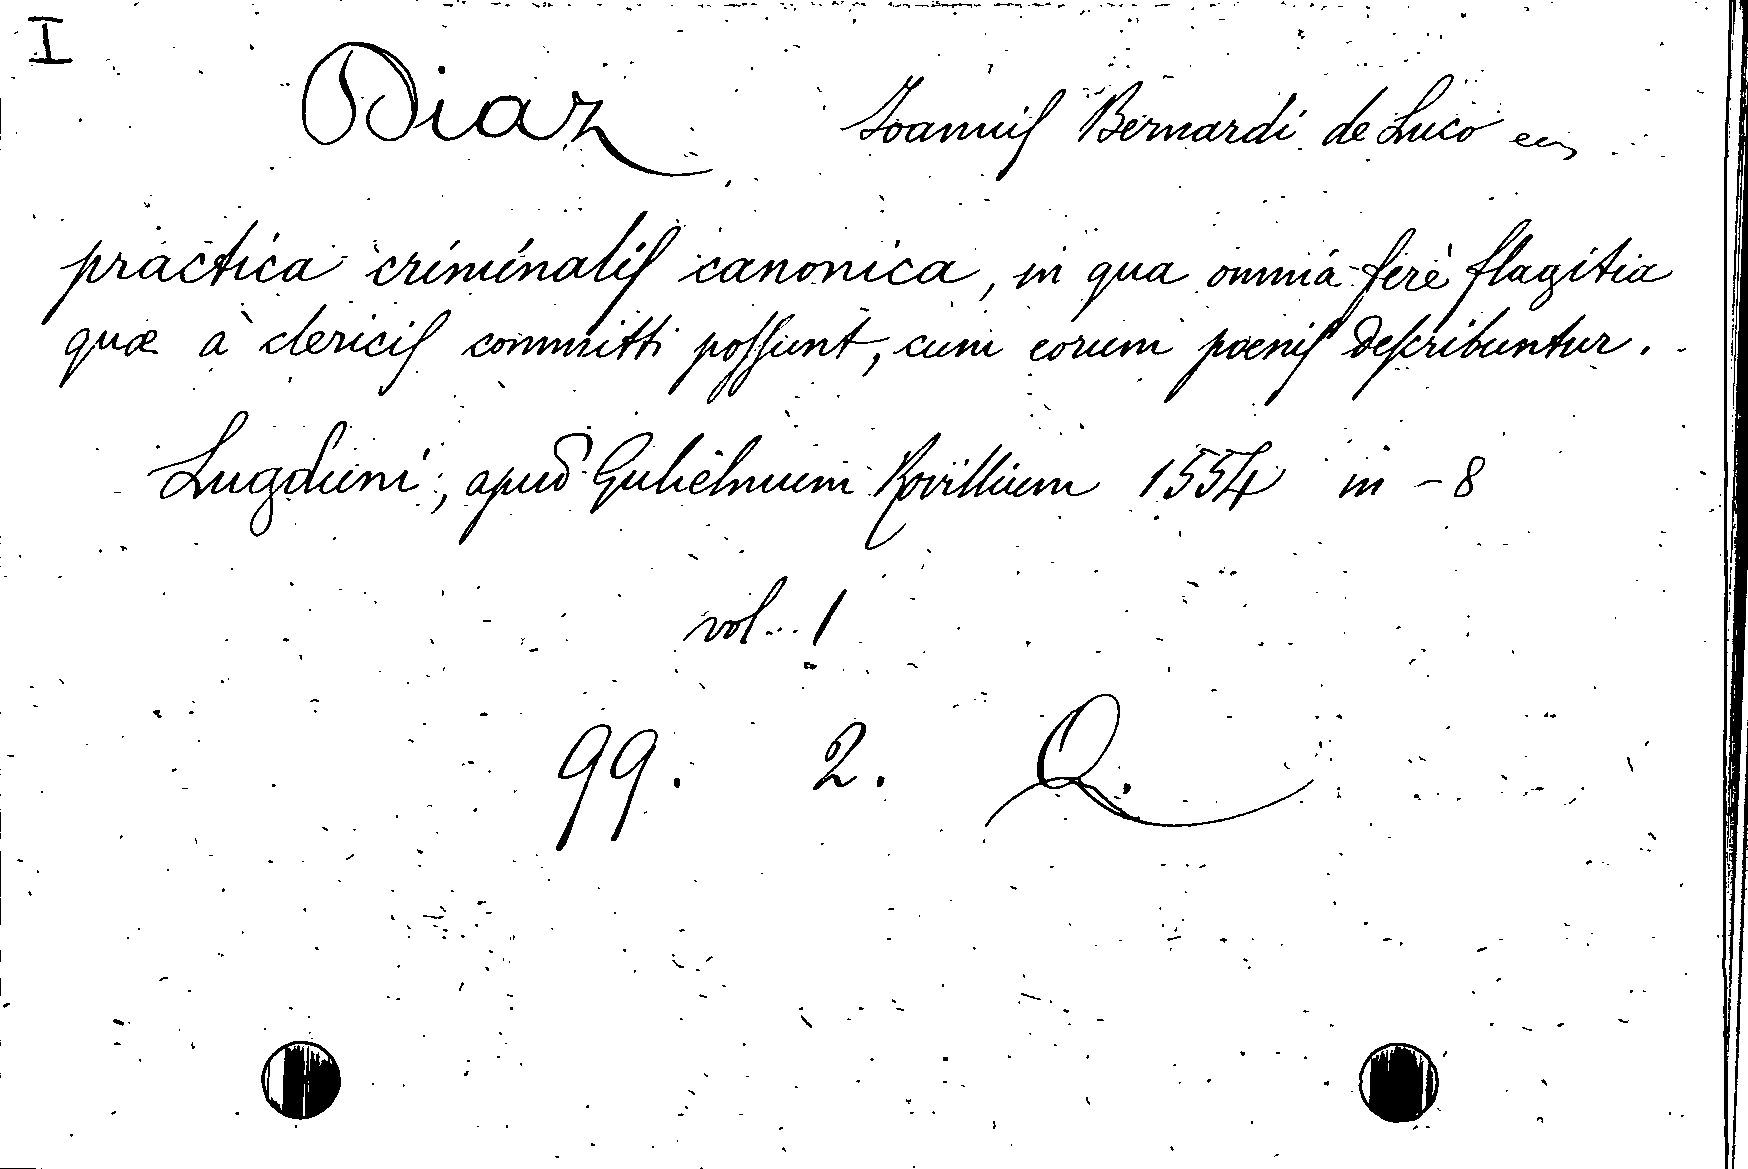 I
Diaz Joannis Bernardi de Luco
practica criminalis canonica, in qua omnia ferè flagitia
quæ à clericis committi possunt, cum eorum pœnis describuntur.
Lugduni, apud Gulielmum Rovillium 1554 in-8
vol. 1
99. 2. Q.